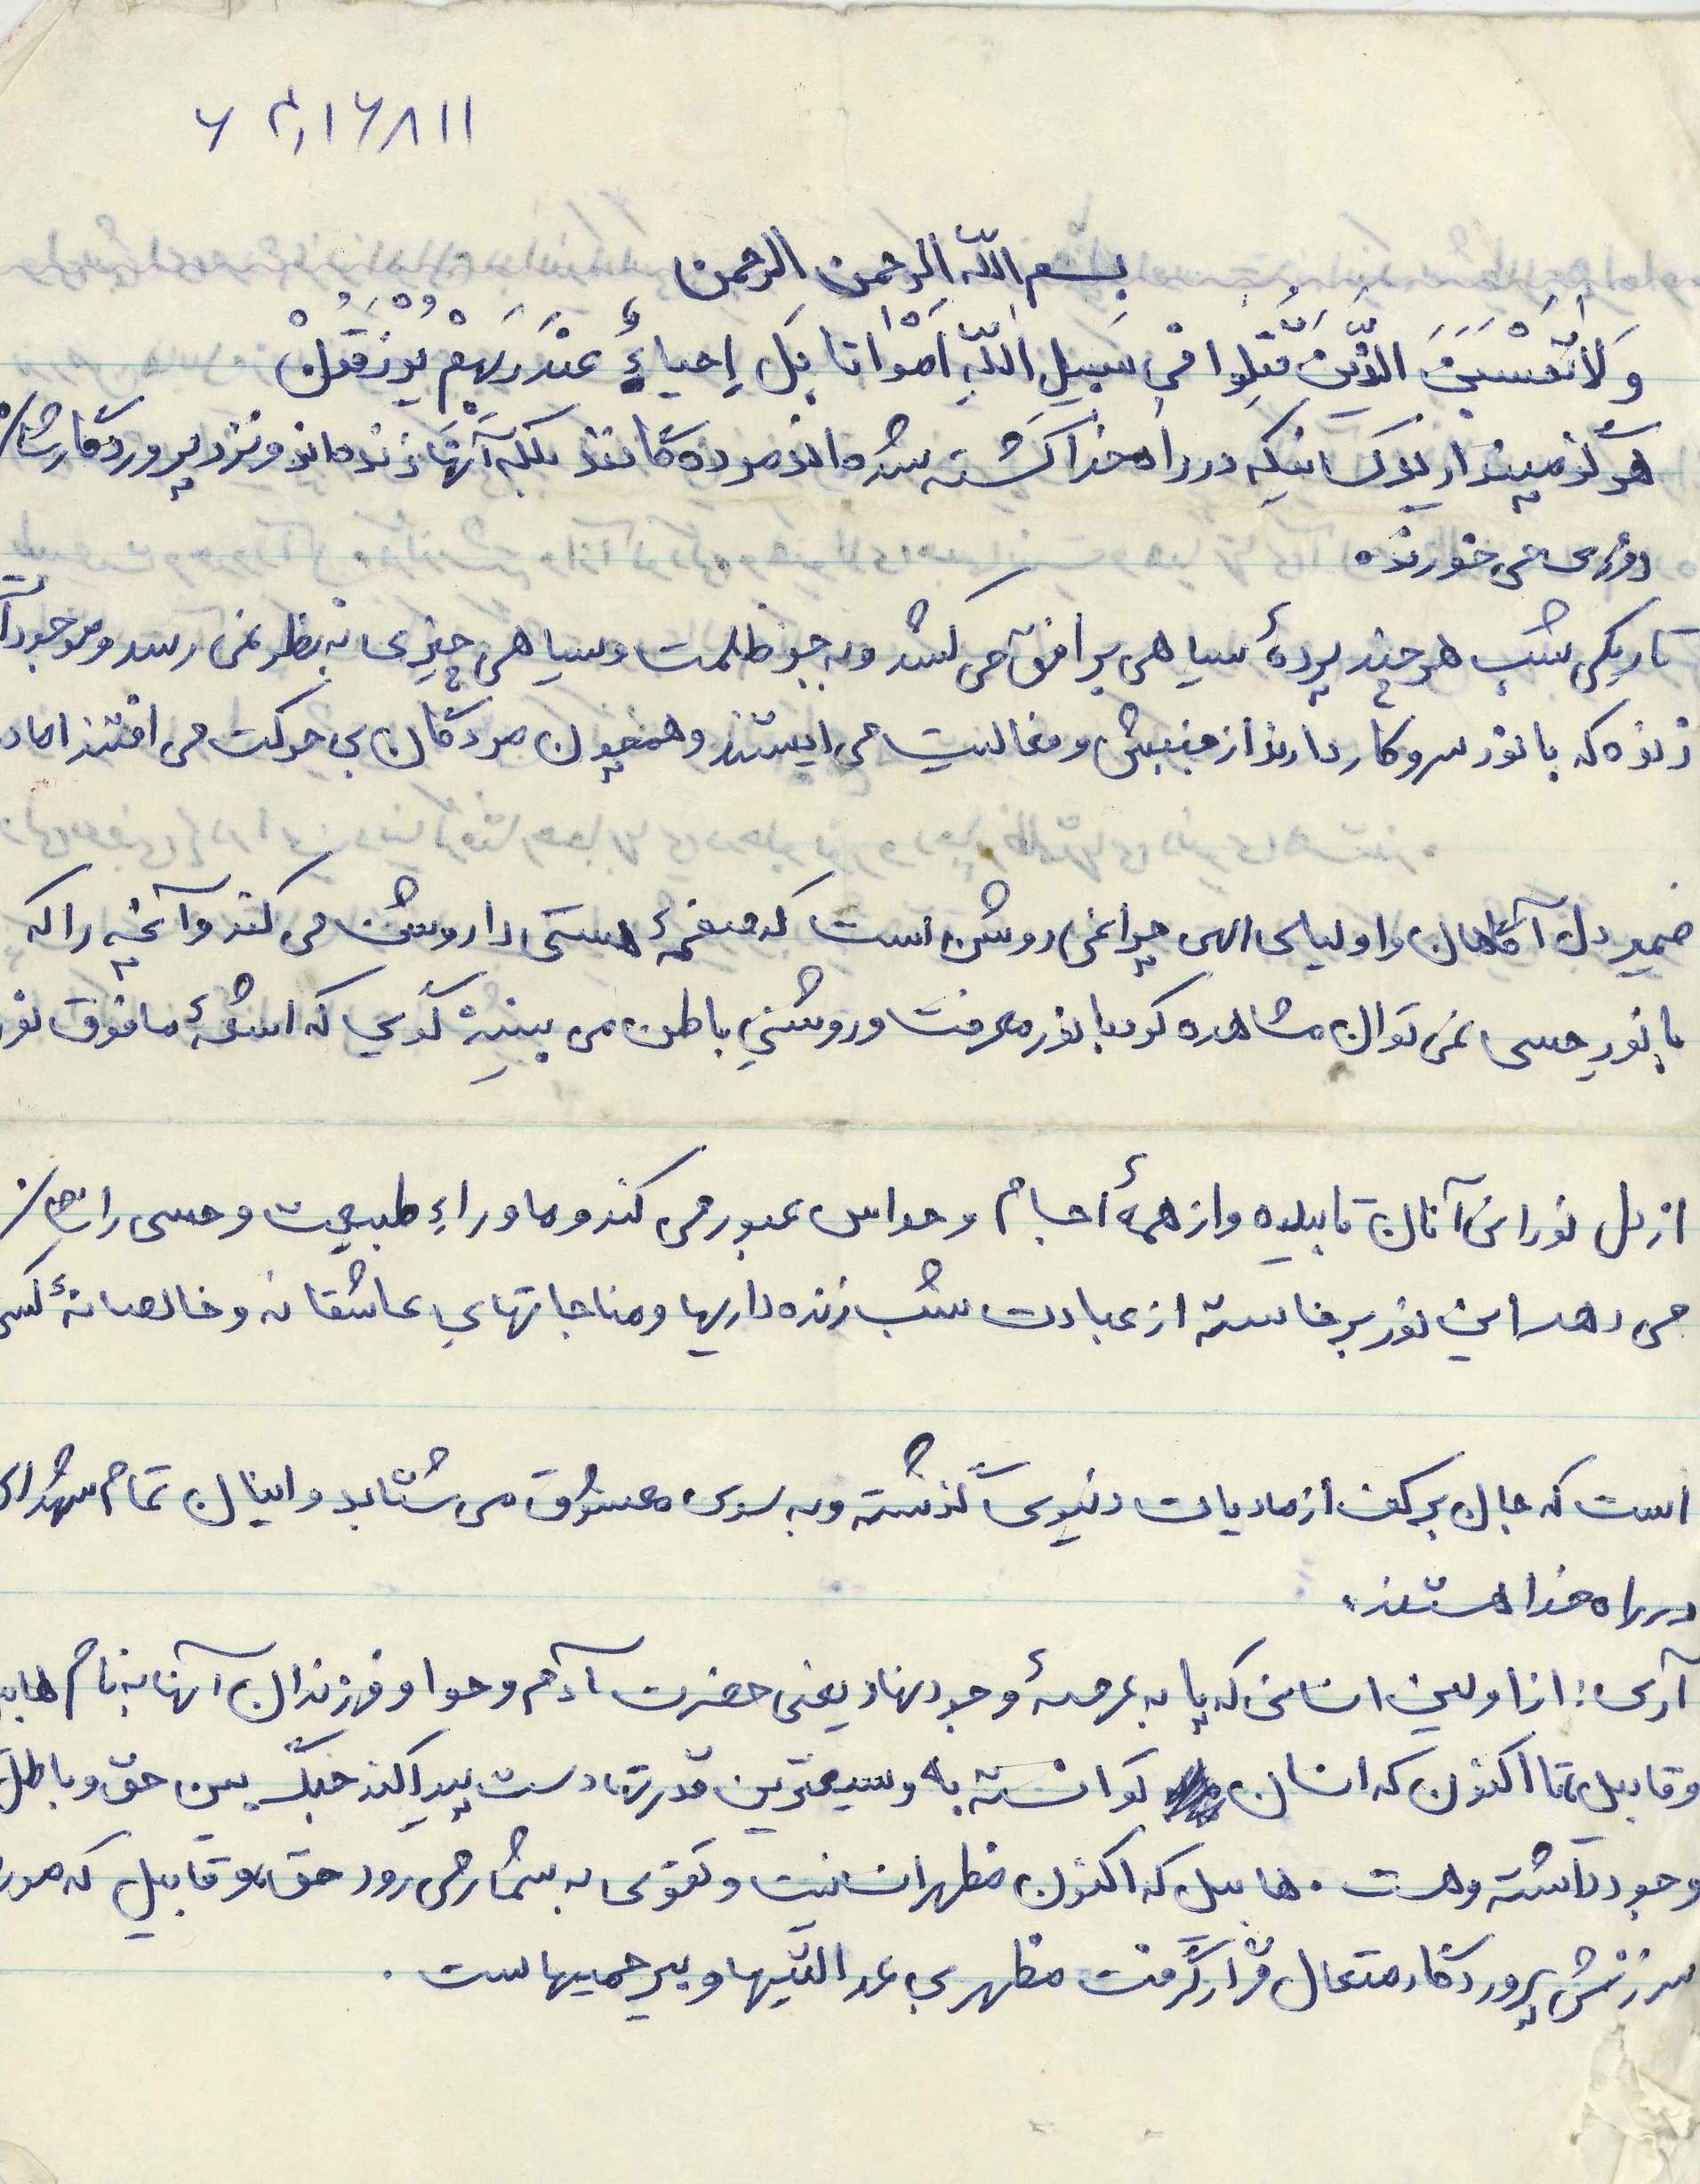 بسم اللّه الرحمن الرحمن
وَلاٰ تَحْسَبَنَ الذّینَ قُتِلوا فیٖ سَبیٖلِ اللّهِ اَمْواتا بَل اِحیاءُ عِنْدَ رَبِهِمْ یُوْزَقُوُنْ
هرگز مپندارید کسانیکه در راه خدا کشته شده اند مرده گانند بلکه آنها زنده اند و نزد پروردگارشان
روزی می خورند.
تاریکی شب هر چند پردهٔ سیاهی بر افق می کشد و به جز ظلمت و سیاهی چیزی به نظر نمی رسد و موجودات
زنده که با نور سر و کار دارند از جنبش و فعالیت می ایستند و همچون مردگان بی حرکت می افتند اما در
ضمیر دل آگاهان و اولیای الهی چراغی روشن است که صفحهٔ هستی را روشن می کند و آنچه را که
با نور حسی نمی توان مشاهده کرد با نور معرفت و روشنی باطن می بینید گویی که اشعهٔ مافوق نور
از دل نورانی آنان تابیده و از همهٔ اجسام و حواس عبور می کند و ماوراء طبیعت و حسی را نشان
می دهد این نور برخاسته از عبادت شب زنده داریها و مناجاتهای عاشقانه و خالصانهٔ کسی
است که جان بر کف از مادیات دنیوی گذشته و به سوی معشوق می شتابد و اینان تمام شهدای
در راه خدا هستند.
آری: از اولین انسانی که پا به عرصهٔ وجود نهاد یعنی حضرت آدم و حوا و فرزندان آنها به نام هابیل
و قابیل تا اکنون که انسان توانسته به وسیعترین قدرتها دست پیدا کند جنگ بین حق و باطل
وجود داشته و هست. هابیل که اکنون مظهر انسانیت و تقوی به شمار می رود حق و قابیل که مورد
سرزنش پروردگار متعال قرار گرفت مظهر بی عدالتیها و بیرحمیهاست.